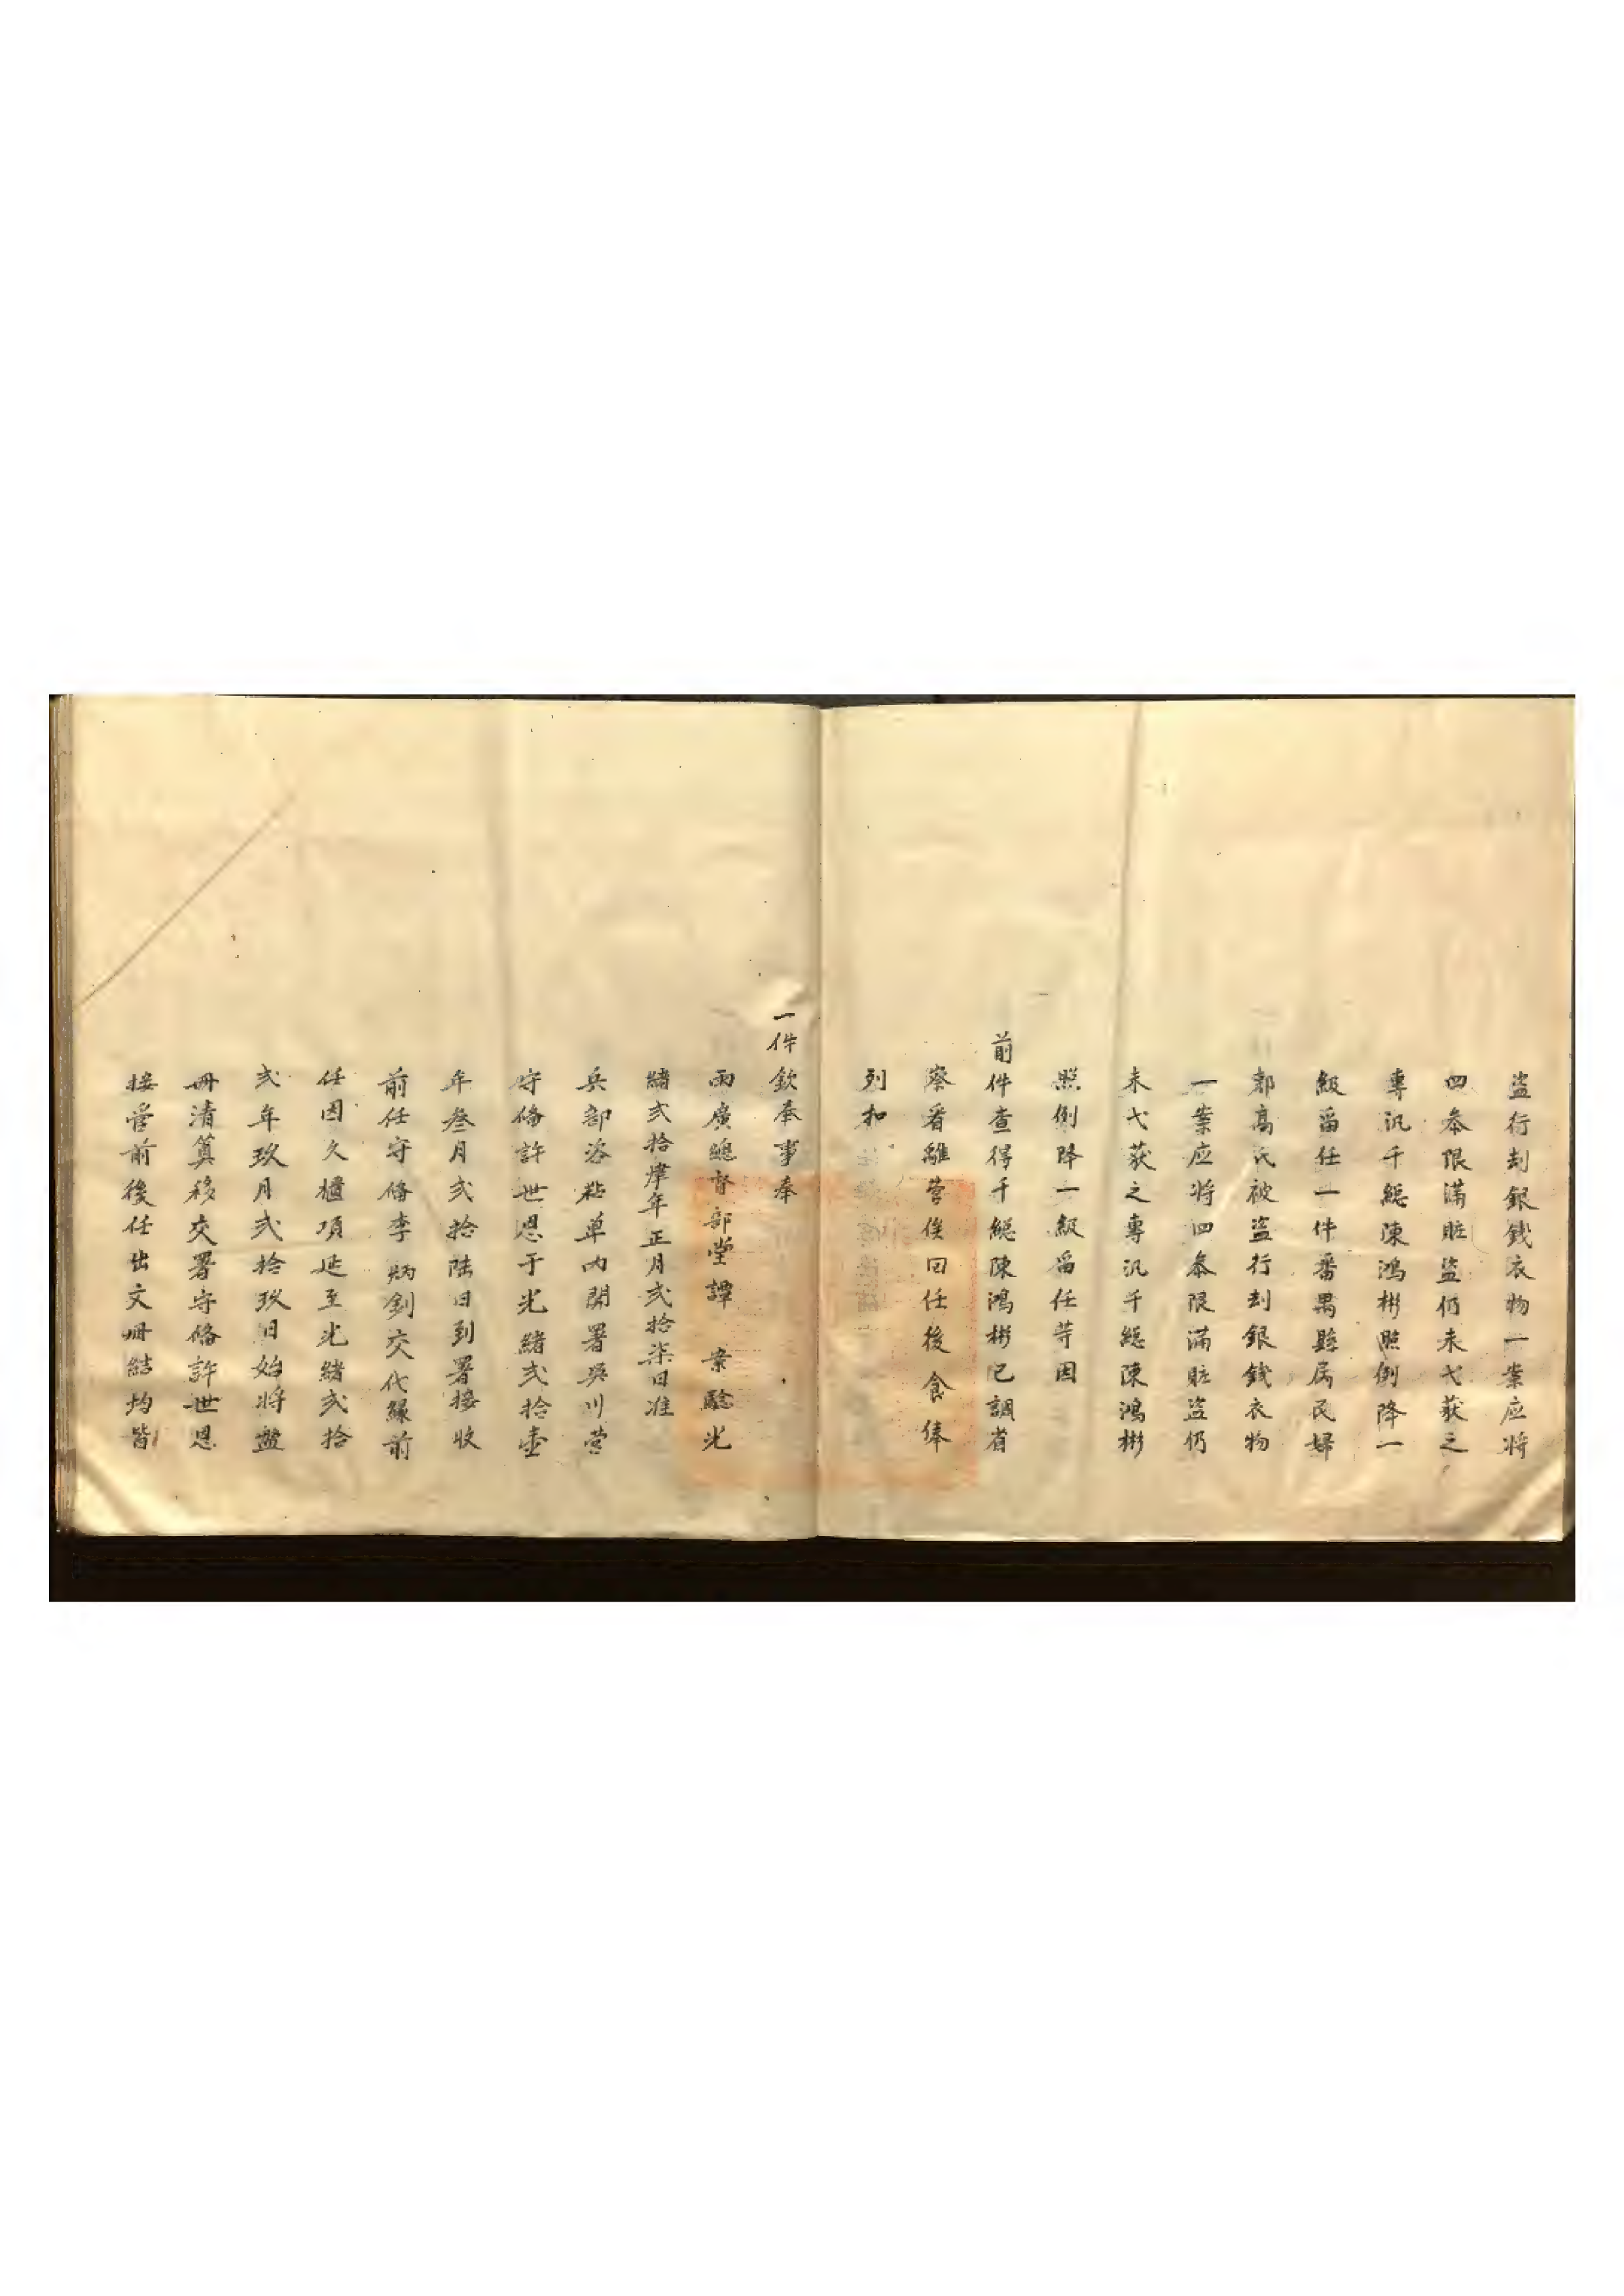 盗行刦銀錢衣物一案应将
四叅限滿賍盜仍未弋获之
專汛千緫陳鴻彬照例降一
級畱任一件番禺縣属民婦
鄭高氏被盜行刦銀錢衣物
一案应将四叅限滿賍盜仍
未弋获之專汛千緫陳鴻彬
照例降一級畱任等因
前件查得千緫陳鴻彬已調省
察看離营俟回任後食俸
列扣
一件欽奉事奉
兩廣總督部堂譚　案驗光
緒弍拾肆年正月弍拾柒日准
兵部咨粘单内開署吳川营
守俻許世恩于光緒弍拾壹
年叁月弍拾陸日到署接收
前任守俻李炳釗交代緣前
任因久櫃項延至光緒弍拾
弍年玖月弍拾玖日始将盤
冊清算移交署守俻許世恩
接管前後任出文冊結均皆